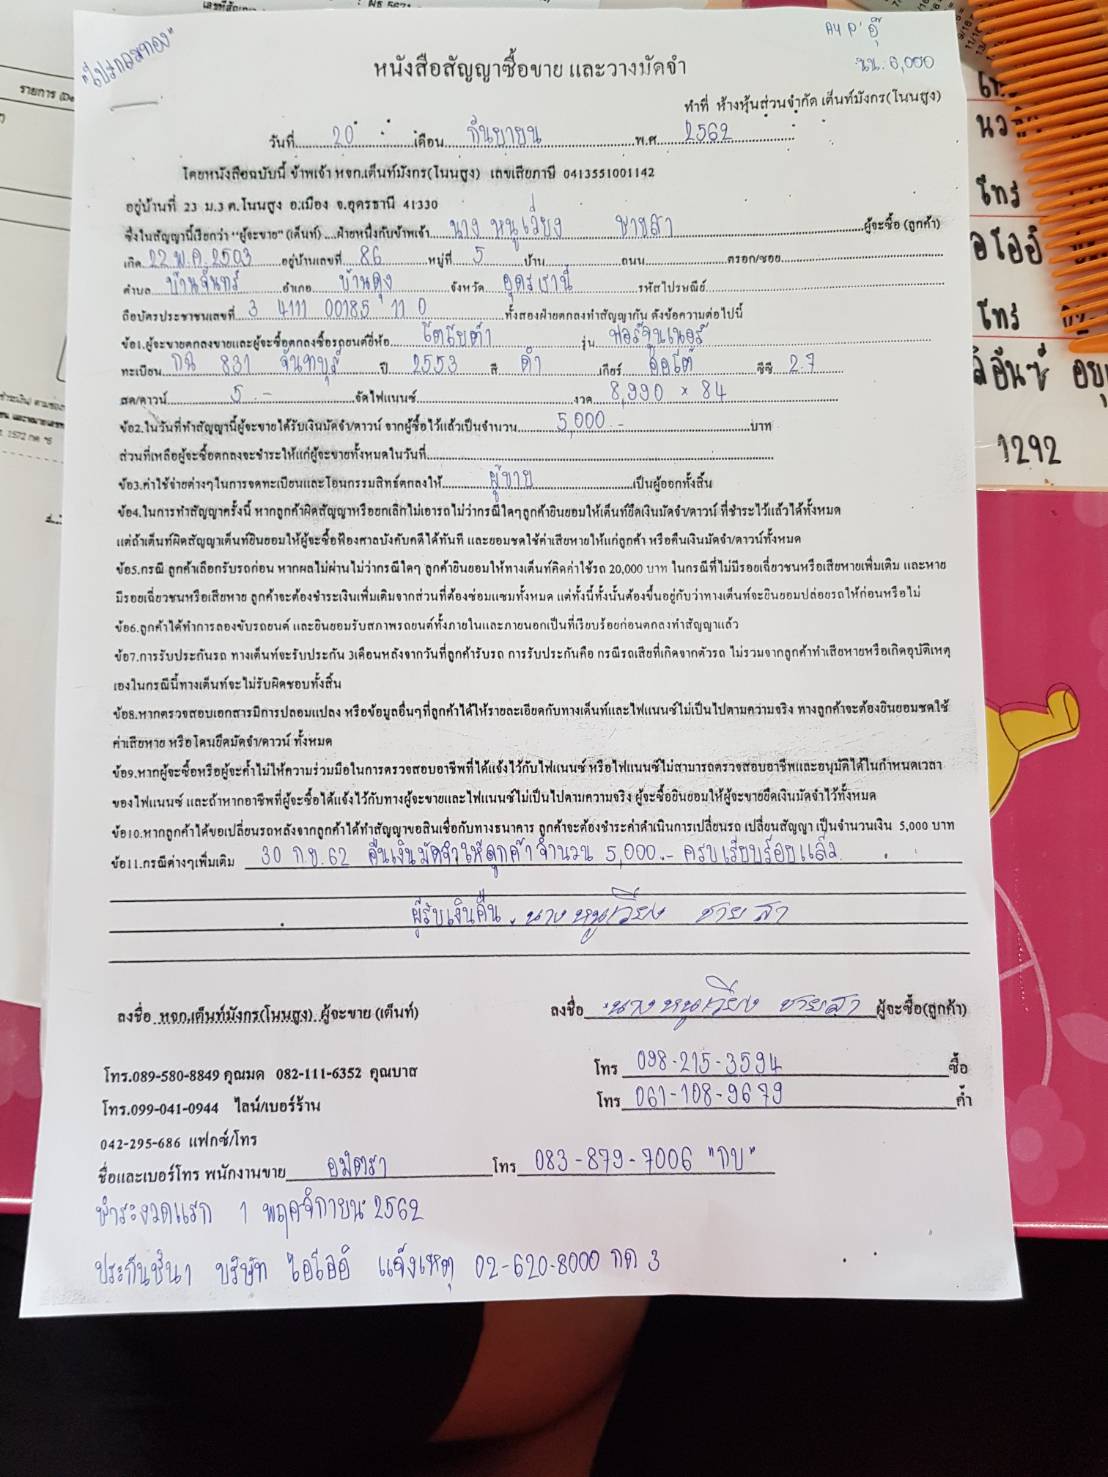 "โปรกลมทอง"
AY P'อุ๊
นน. 6,000
หนังสือสัญญาซื้อขาย และวางมัดจำ
ทำที่ ห้างหุ้นส่วนจำกัด เต็นท์มังกร(โนนสูง)
วันที่ 20 เดือน กันยายน พ.ศ. 2562
โดยหนังสือฉบับนี้ ข้าพเจ้า หจก.เต็นท์มังกร(โนนสูง) เลขเสียภาษี 0413551001142
อยู่บ้านที่ 23 ม.3 ต.โนนสูง อ.เมือง จ.อุดรธานี 41330
ซึ่งในสัญญานี้เรียกว่า "ผู้จะขาย" (เต็นท์) ...ฝ่ายหนึ่งกับข้าพเจ้า นาง หนูเวียง ชายสา ผู้จะซื้อ (ลูกค้า)
เกิด 22 พ.ค. 2503 อยู่บ้านเลขที่ 86 หมู่ที่ 5 บ้าน ถนน ตรอก/ซอย
ตำบล บ้านจันทร์ อำเภอ บ้านดุง จังหวัด อุดรธานี รหัสไปรษณีย์
ถือบัตรประชาชนเลขที่ 3 4111 00185 11 0 ทั้งสองฝ่ายตกลงทำสัญญากัน ดังข้อความต่อไปนี้
ข้อ1.ผู้จะขายตกลงขายและผู้จะซื้อตกลงซื้อรถยนต์ยี่ห้อ โตโยต้า รุ่น ฟอร์จูนเนอร์
ทะเบียน กฉ 831 จันทบุรี ปี 2553 สี ดำ เกียร์ ออโต้ ซีซี 2.7
สด/ดาวน์ 5.- จัดไฟแนนซ์ งวด 8,990 x 84
ข้อ2.ในวันที่ทำสัญญานี้ผู้จะขายได้รับเงินมัดจำ/ดาวน์ จากผู้ซื้อไว้แล้วเป็นจำนวน 5,000.- บาท
ส่วนที่เหลือผู้จะซื้อตกลงจะชำระให้แก่ผู้จะขายทั้งหมดในวันที่
ข้อ3.ค่าใช้จ่ายต่างๆในการจดทะเบียนและโอนกรรมสิทธ์ตกลงให้ ผู้ขาย เป็นผู้ออกทั้งสิ้น
ข้อ4.ในการทำสัญญาครั้งนี้ หากลูกค้าผิดสัญญาหรือยกเลิกไม่เอารถ ไม่ว่ากรณีใดๆลูกค้ายินยอมให้เต็นท์ยึดเงินมัดจำ/ดาวน์ ที่ชำระไว้แล้วได้ทั้งหมด
แต่ถ้าเต็นท์ผิดสัญญาเต็นท์ยินยอมให้ผู้จะซื้อฟ้องศาลบังคับคดีได้ทันที และยอมชดใช้ค่าเสียหายให้แก่ลูกค้า หรือคืนเงินมัดจำ/ดาวน์ทั้งหมด
ข้อ5.กรณี ลูกค้าเลือกรับรถก่อน หากผลไม่ผ่านไม่ว่ากรณีใดๆ ลูกค้ายินยอมให้ทางเต็นท์คิดค่าใช้รถ 20,000 บาท ในกรณีที่ไม่มีรอยเฉี่ยวชนหรือเสียหายเพิ่มเติม และหาย
มีรอยเฉี่ยวชนหรือเสียหาย ลูกค้าจะต้องชำระเงินเพิ่มเติมจากส่วนที่ต้องซ่อมแซมทั้งหมด แต่ทั้งนี้ทั้งนั้นต้องขึ้นอยู่กับว่าทางเต็นท์จะยินยอมปล่อยรถให้ก่อนหรือไม่
ข้อ6.ลูกค้าได้ทำการลองขับรถยนต์ และยินยอมรับสภาพรถยนต์ทั้งภายในและภายนอกเป็นที่เรียบร้อยก่อนตกลงทำสัญญาแล้ว
ข้อ7.การรับประกันรถ ทางเต็นท์จะรับประกัน 3เดือนหลังจากวันที่ลูกค้ารับรถ การรับประกันคือ กรณีรถเสียที่เกิดจากตัวรถ ไม่รวมจากลูกค้าทำเสียหายหรือเกิดอุบัติเหตุ
เองในกรณีนี้ทางเต็นท์จะไม่รับผิดชอบทั้งสิ้น
ข้อ8.หากตรวจสอบเอกสารมีการปลอมแปลง หรือข้อมูลอื่นๆที่ลูกค้าได้ให้รายละเอียดกับทางเต็นท์และไฟแนนซ์ไม่เป็นไปตามความจริง ทางลูกค้าจะต้องยินยอมชดใช้
ค่าเสียหาย หรือโดนยึดมัดจำ/ดาวน์ ทั้งหมด
ข้อ9.หากผู้จะซื้อหรือผู้จะค้ำไม่ให้ความร่วมมือในการตรวจสอบอาชีพที่ได้แจ้งไว้กับไฟแนนซ์ หรือไฟแนนซ์ไม่สามารถตรวจสอบอาชีพและอนุมัติได้ในกำหนดเวลา
ของไฟแนนซ์ และถ้าหากอาชีพที่ผู้จะซื้อได้แจ้งไว้กับทางผู้จะขายและไฟแนนซ์ไม่เป็นไปตามความจริง ผู้จะซื้อยินยอมให้ผู้จะขายยึดเงินมัดจำไว้ทั้งหมด
ข้อ10.หากลูกค้าได้ขอเปลี่ยนรถหลังจากลูกค้าได้ทำสัญญาขอสินเชื่อกับทางธนาคาร ลูกค้าจะต้องชำระค่าดำเนินการเปลี่ยนรถ เปลี่ยนสัญญา เป็นจำนวนเงิน 5,000 บาท
ข้อ11.กรณีต่างๆเพิ่มเติม 30 ก.ย. 62 คืนเงินมัดจำให้ลูกค้า จำนวน 5,000.- ครบเรียบร้อยแล้ว
ผู้รับเงินคืน นาง หนูเวียง ชายสา
ลงชื่อ หจก.เต็นท์มังกร(โนนสูง) ผู้จะขาย (เต็นท์)
ลงชื่อ นางหนูเวียง ชายสา ผู้จะซื้อ(ลูกค้า)
โทร 098-215-3594 ซื้อ
โทร.089-580-8849 คุณมด 082-111-6352 คุณบาส
โทร 061-108-9679 ค้ำ
โทร.099-041-0944 ไลน์/เบอร์ร้าน
042-295-686 แฟกซ์/โทร
ชื่อและเบอร์โทร พนักงานขาย อมิตรา โทร 083-879-7006 "กบ"
ชำระงวดแรก 1 พฤศจิกายน 2562
ประกันชั้น1 บริษัท ไอโออิ แจ้งเหตุ 02-620-8000 กด 3
โทร
โทร
1292